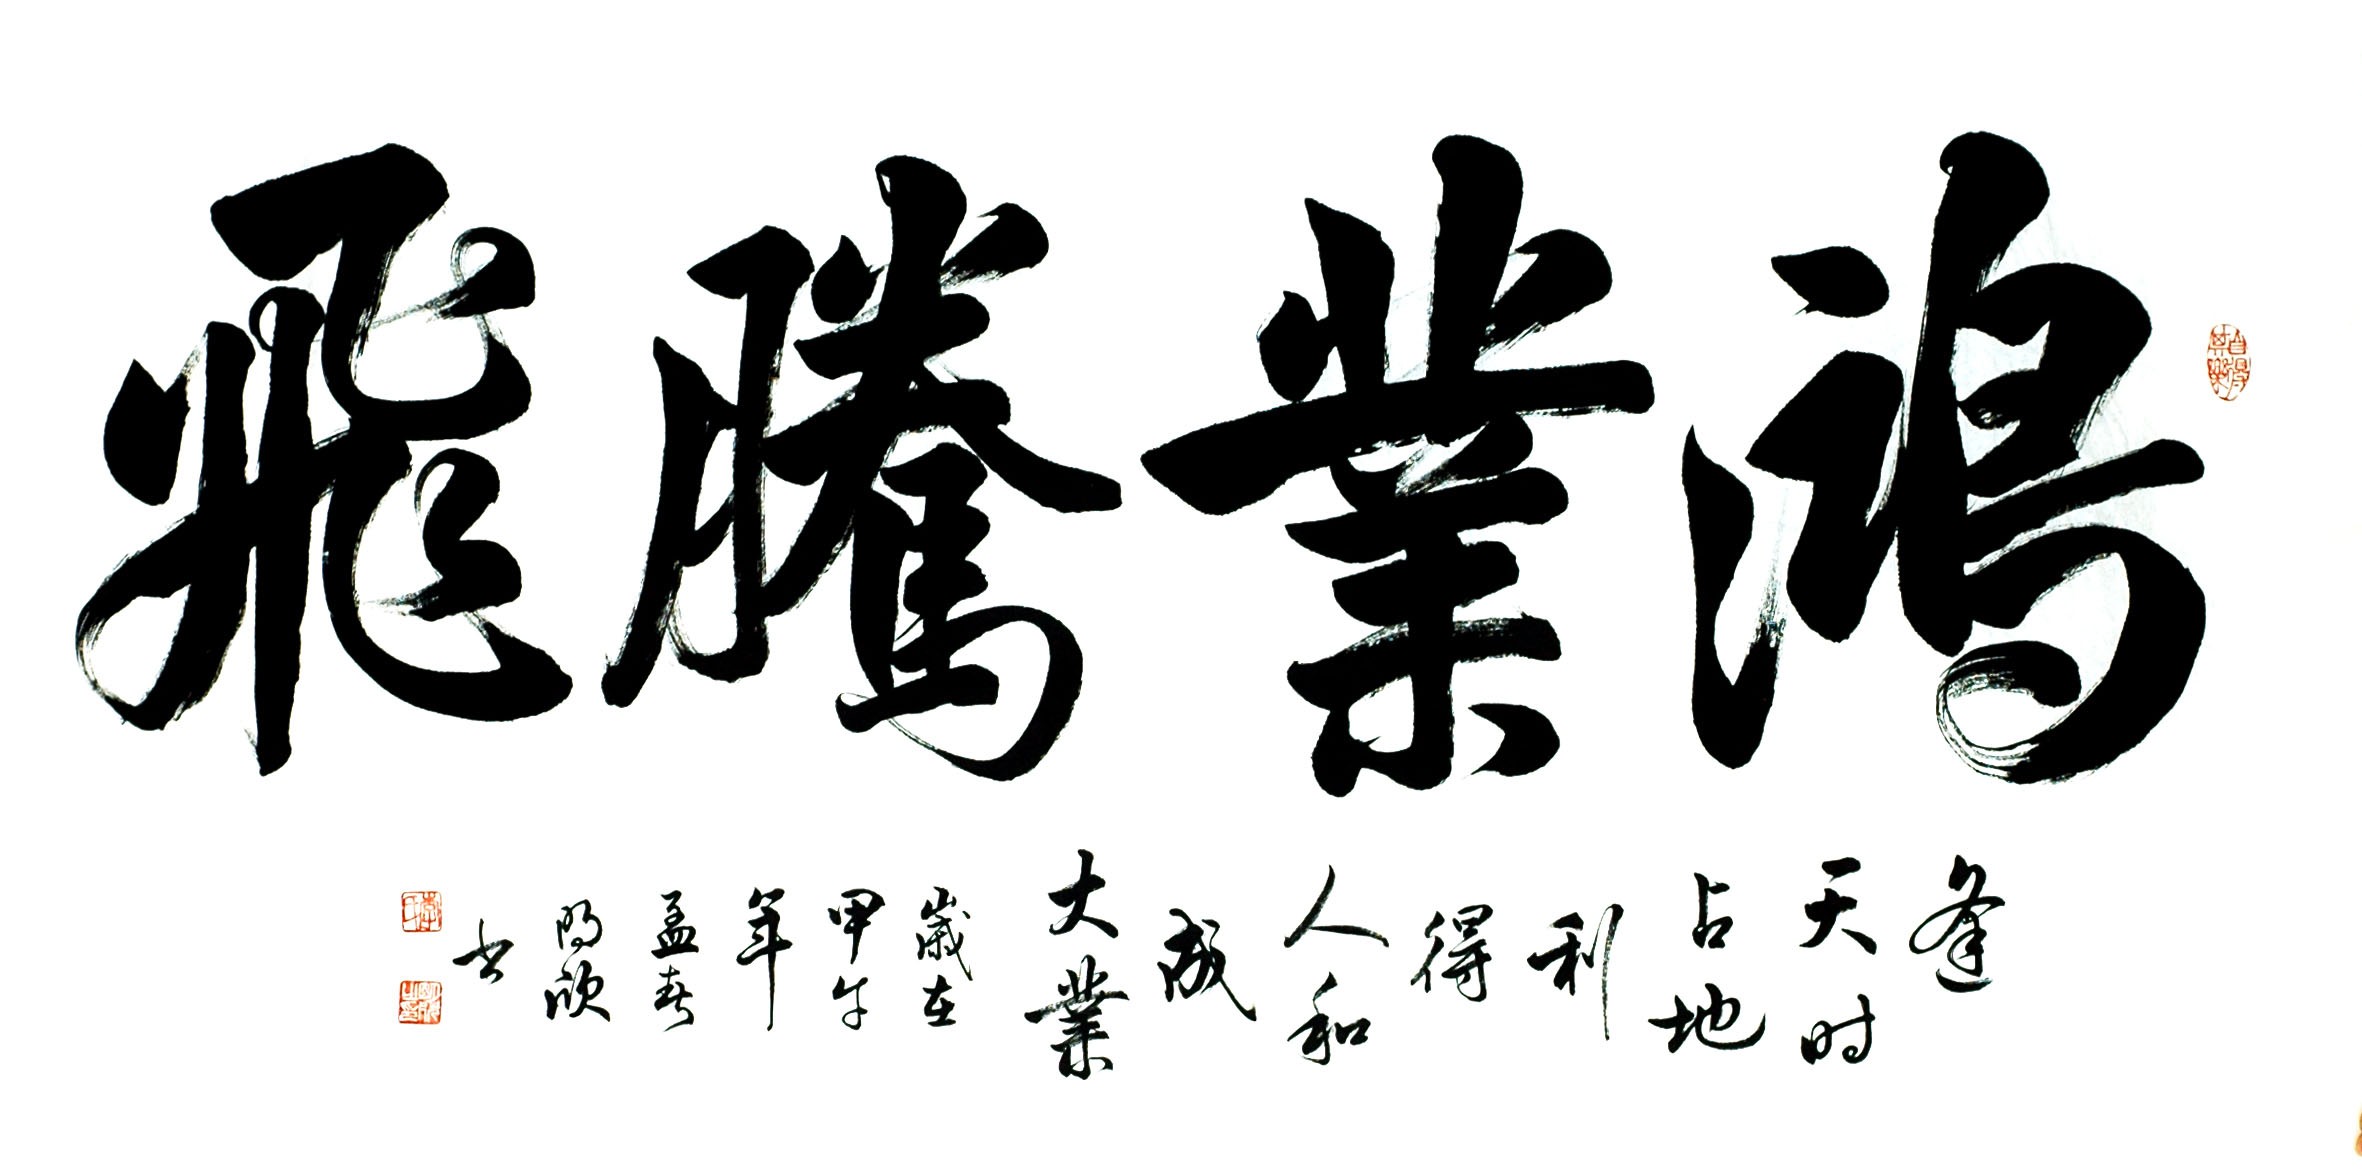 鴻業騰飛
逢
天时
占地
利
得
人和
成
大業
歲在
甲午
年
孟春
明欣
书